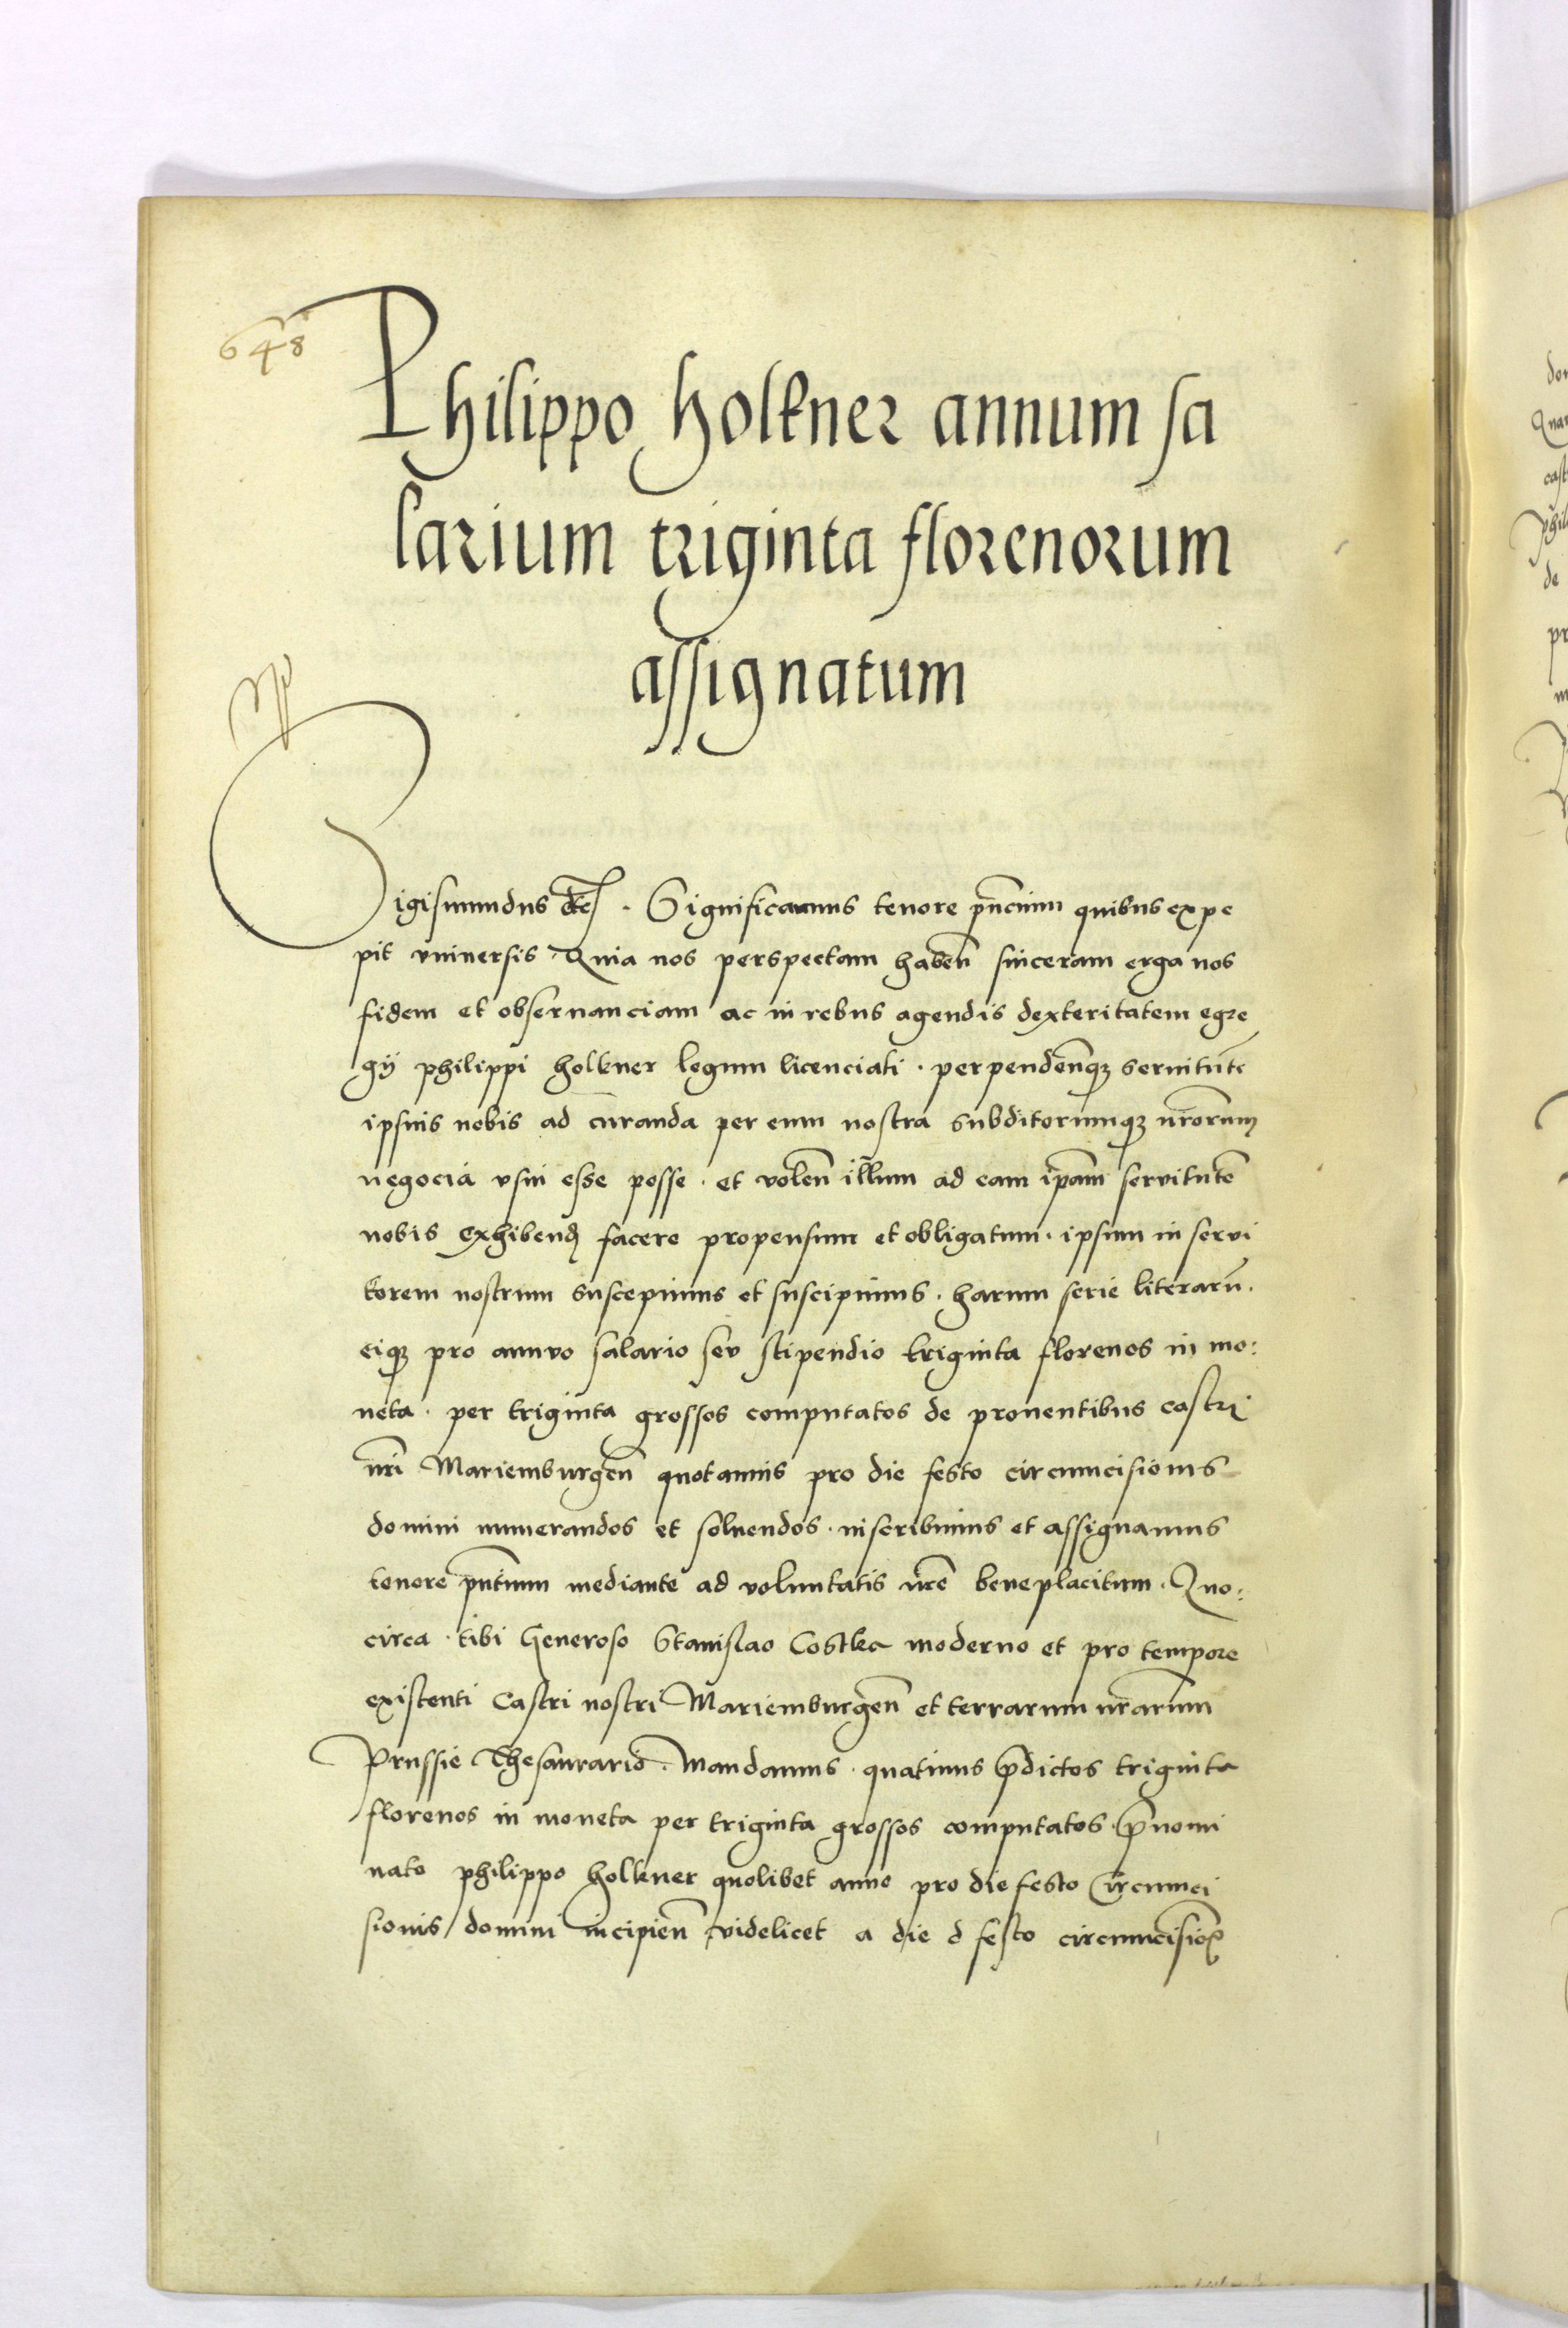 648
Philippo holkner annum sa
larium triginta florenorum
assignatum
Sigismundus etc. Significamus tenore pñcium quibus expe
pit vniuersis Quia nos perspectam habeñ sinceram erga nos
fidem et obseruanciam ac in rebus agendis dexteritatem egre
gij philippi holkner legum licenciati · perpendeñq₃ seruitutẽ
ipsius nobis ad curanda per eum nostra subditorumq₃ nrõrum
negocia vsui esse posse · et voleñ illum ad eam ip̃am servitutẽ
nobis exhibend facere propensum et obligatum · ipsum in servi
torem nostrum suscepimus et suscipimus · harum serie literarũ ·
eiq₃ pro annvo salario sev stipendio triginta florenos in mo:
neta · per triginta grossos computatos de prouentibus castri
nr̃i Mariemburgeñ quotannis pro die festo circumcisionis
domini numerandos et soluendos · inscribimus et assignamus
tenore pñtium mediante ad voluntatis nrẽ beneplacitum · Quo:
circa · tibi Generoso Stanislao Costka moderno et pro tempore
existenti Castri nostri Mariemburgeñ et terrarum nr̃arum
Prussie Thesaurario · Mandamus · quatinus p̃dictos triginta
florenos in moneta per triginta grossos computatos · p̃nomi
nato philippo holkner quolibet anno pro die festo Circumci
sionis domini incipieñ videlicet a die d festo circumcisioñ